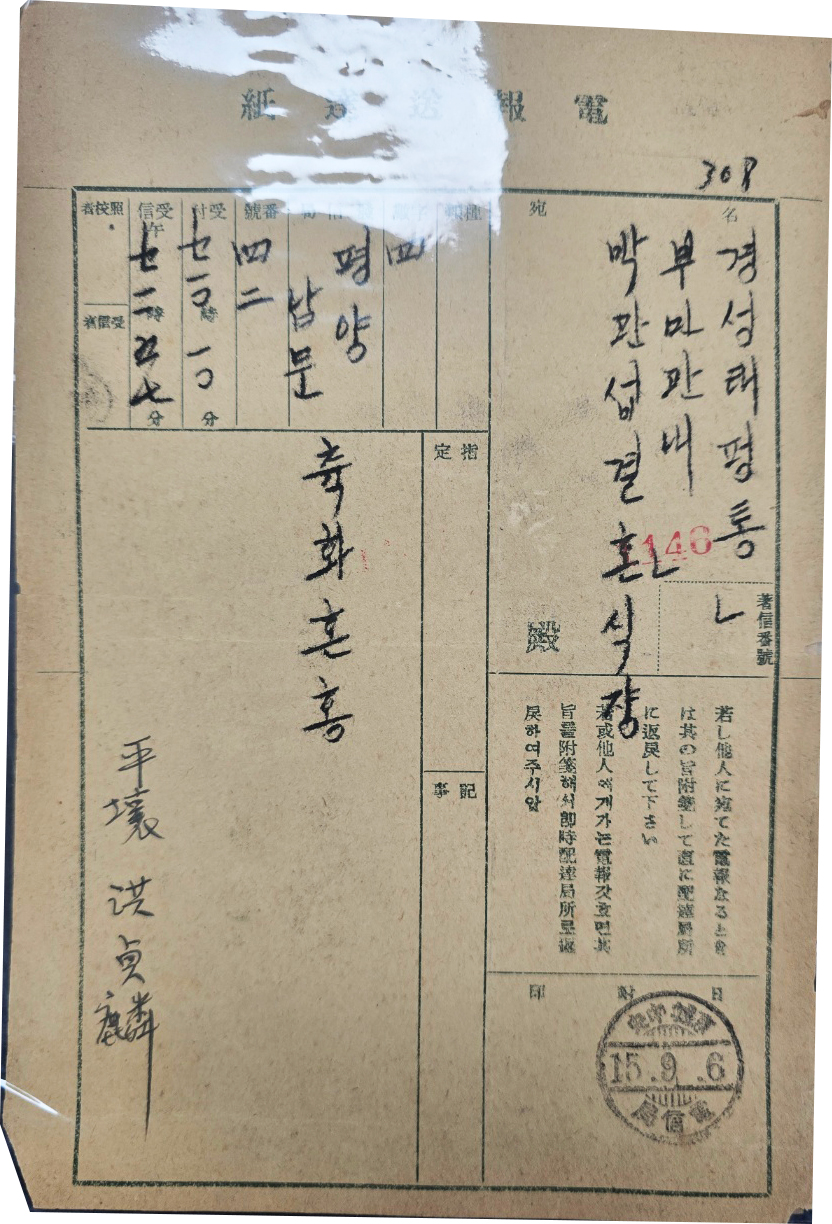 電報送達紙
308
宛名
경성태평통ㄴ
부민관내ㄴ
박관섭결혼식장
殿
146
著信番號
種類
四
평양
남문
番號
四二
受付
七 一〇 時 一〇 分
受信
午
七 一二 時 五七 分
照校者
受信者
若し他人に宛てた電報なるとき
は其の旨附箋して直に配達局所
に返戻して下さい
若或他人에게가는電報갓흐면其
旨를附箋해서卽時配達局所로返
戾하여주시압
日附印
15.9.6
電信局
指定
記事
축화혼홍
平壤 洪貞麟